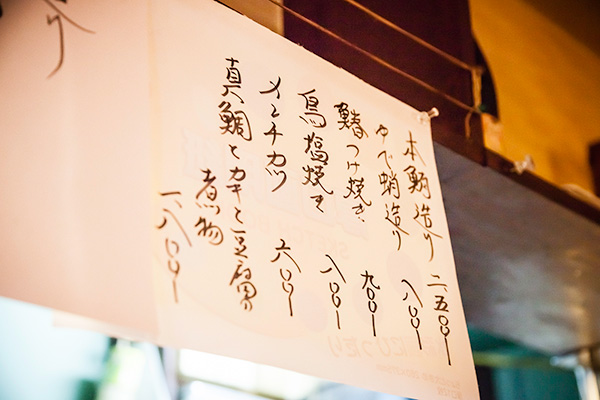 本鮪造り 二五〇〇ー
ゆで蛸造り 八〇〇ー
鰆つけ焼き 九〇〇ー
鳥塩焼き 八〇〇ー
メンチカツ 六〇〇ー
真鯛とカキと豆腐の
煮物 一、八〇〇ー
り